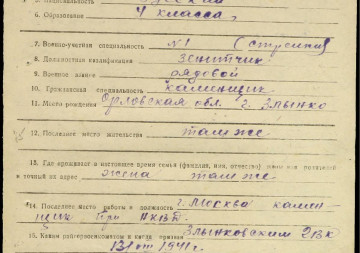 6. Образование 4 класса
7. Военно-учетная специальность №1 (стрелки)
8. Должностная квалификация зенитчик
9. Военное звание рядовой
10. Гражданская специальность каменщик
11. Место рождения Орловская обл. г. Злынко
12. Последнее место жительства там же
13. Где проживает в настоящее время семья (фамилия, имя, отчество) жены или родителей
и точный их адрес жена там же
14. Последнее место работы и должность г. Москва камен-
щик при НКВД
15. Каким райгорвоенкоматом и когда призван Злынковским РВК
1941 г.